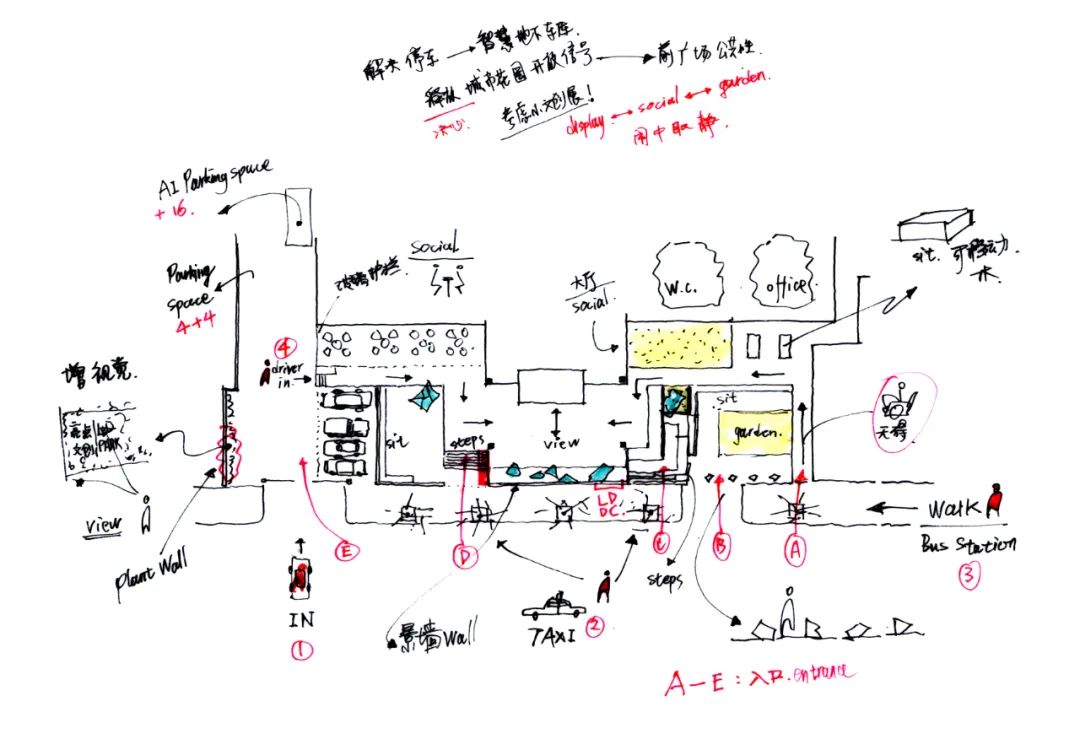 解决停车 → 智慧地下车库.
释放 城市花园 开放信号 → 前广场公共性.
考虑小文创展!
display ↔ social ↔ garden.
闹中取静.
AI Parking space
+ 16.
Parking
space
4+4
social
大厅
social.
W.C.
office
sit. 可移动
④
driver
in.
增视觉.
sit
garden.
sit
steps
view
LD
DC.
view
Plant Wall
E
D
C
B
A
steps
Walk
Bus Station
③
IN
①
景墙 Wall
TAXI
②
A—E: 入口. entrance